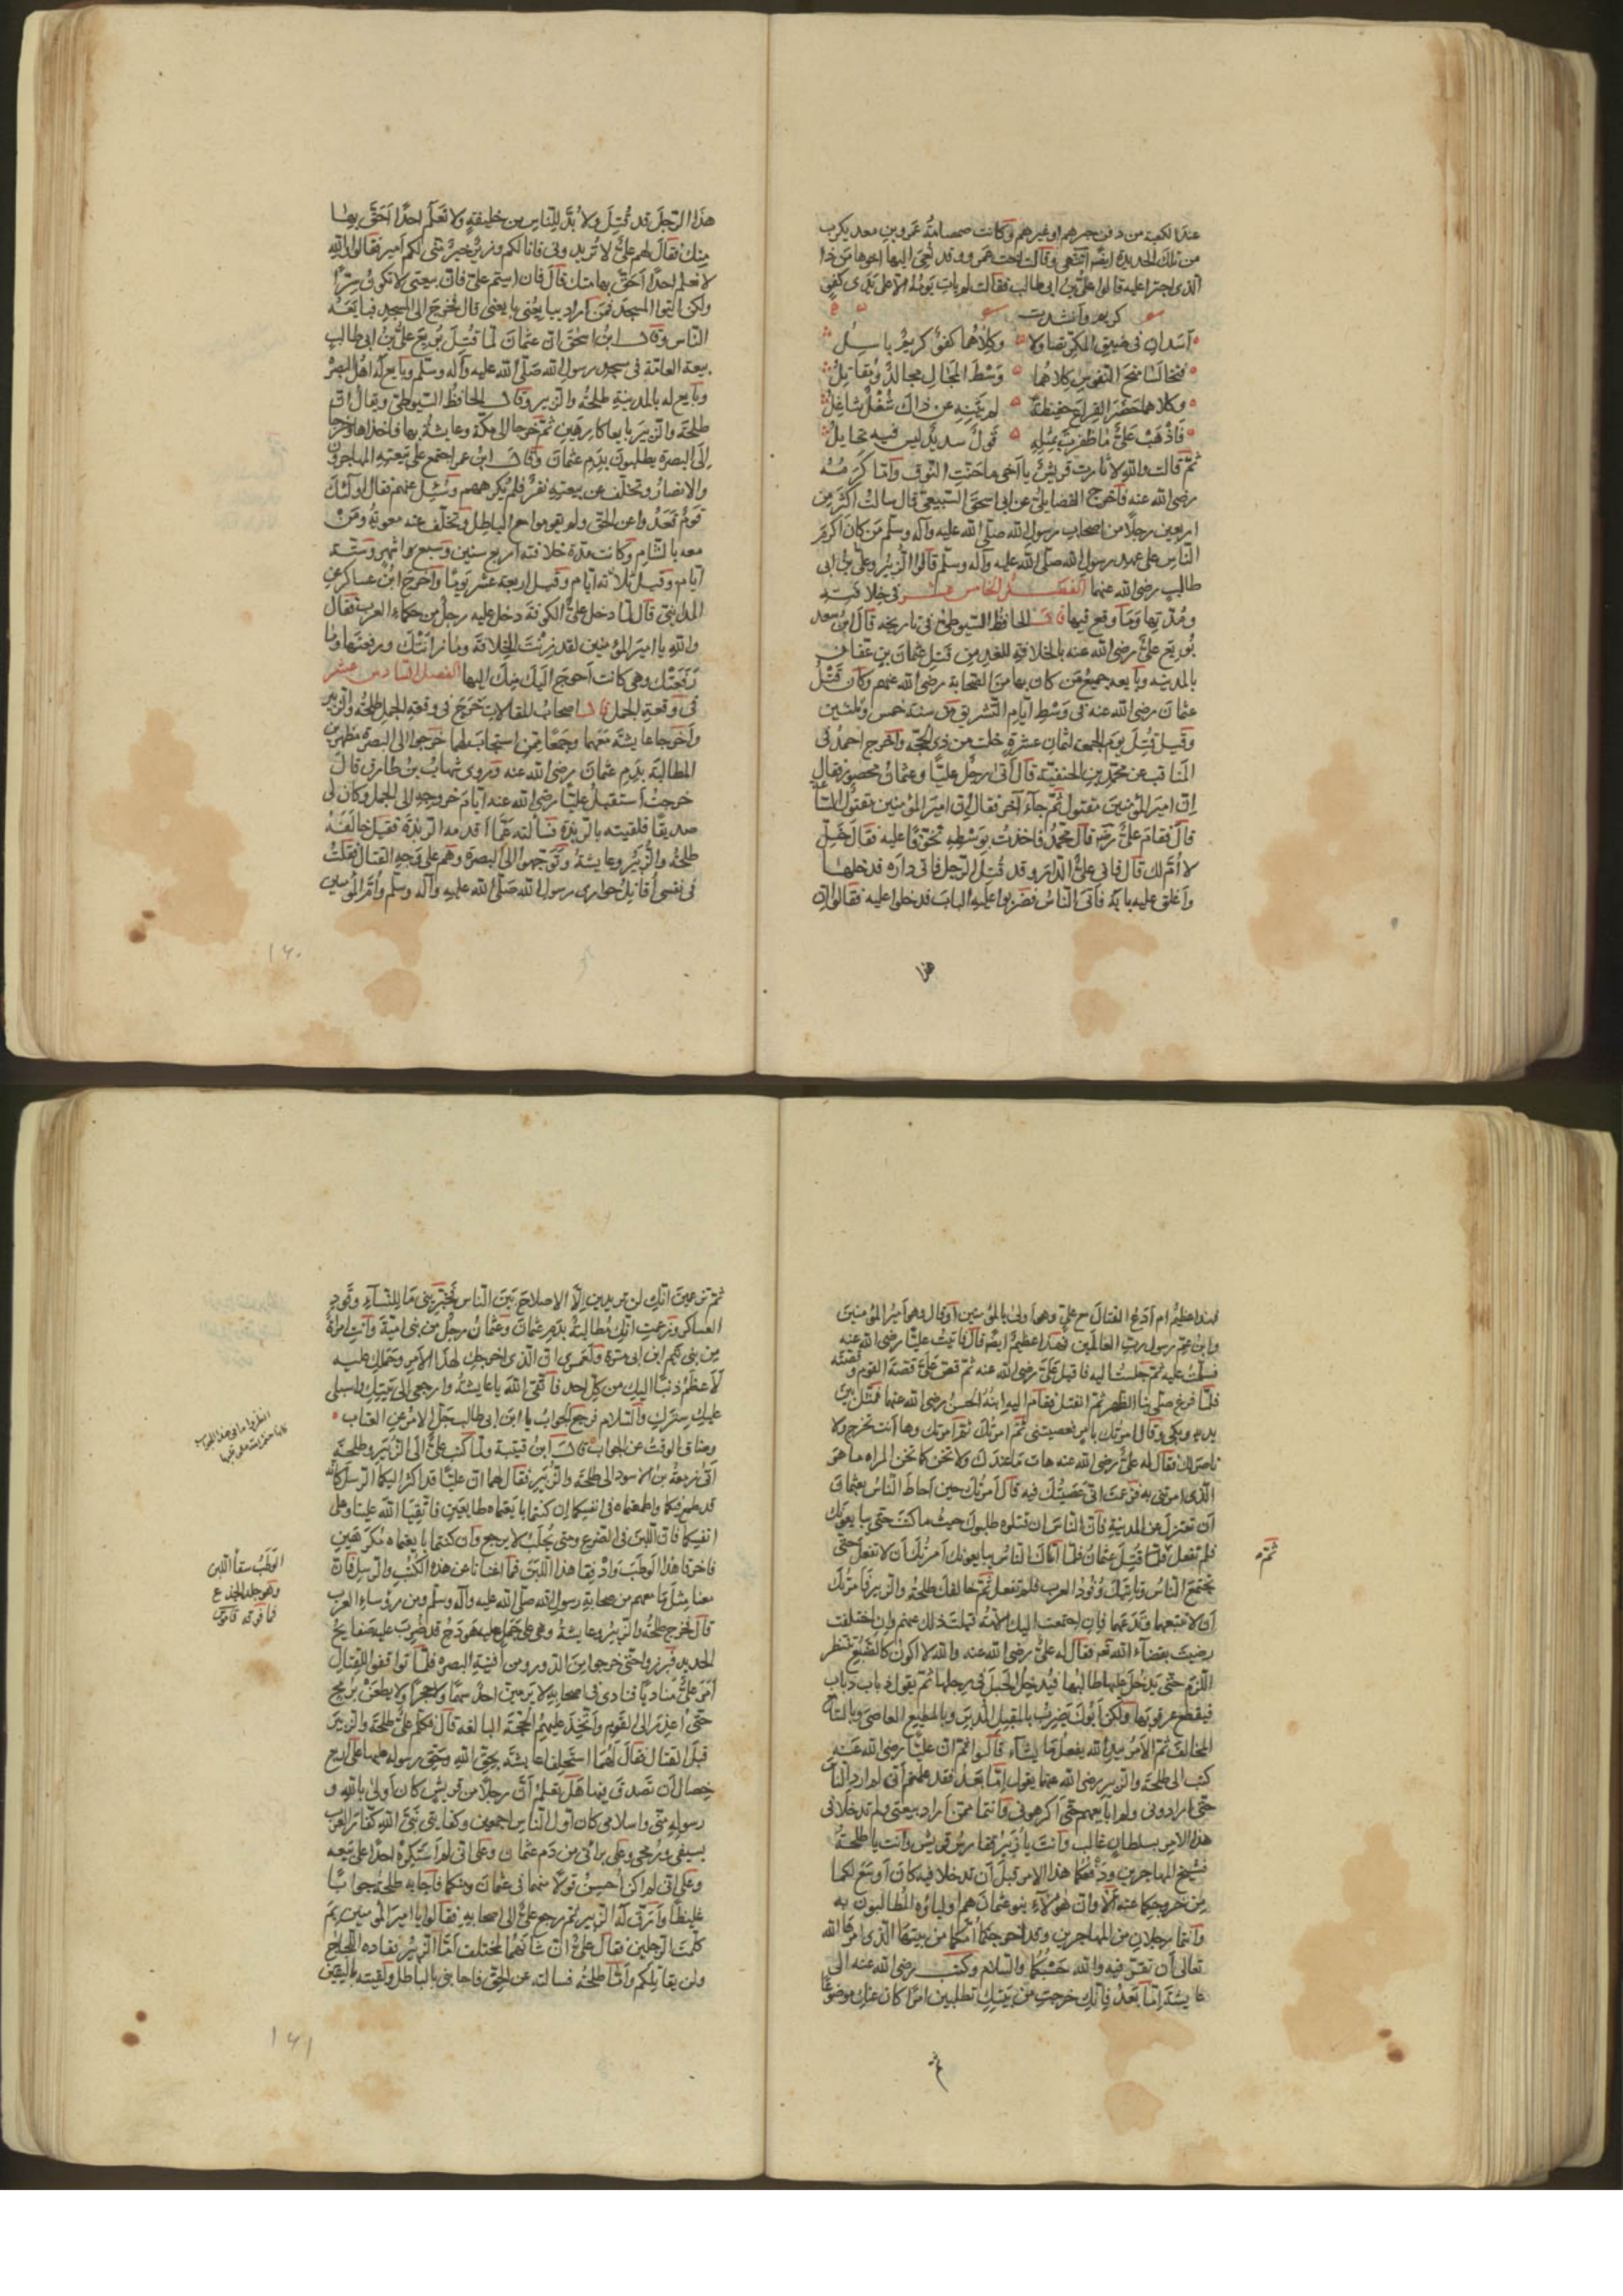 عند الكعبة من دفن جرهم او غيرهم وكانت صمصامة عمرو بن معد يكرب
من تلك الحديدة ايضا انتهى وقالت اخت عمرو وقد نُعِيَ اليها اخوها من ذا
الذى اجترا عليه قالوا على بن ابى طالب فقالت لم يأت يومه الا على يدى كفؤ
كريم وانشدت
أسدان فى ضيق المكرّ تصاولا وكلاهما كفؤ كريم باسل
فتخالسا مهج النفوس كلاهما وسط المجال مجالد ومقاتل
وكلاهما حضر القراع حفيظة لم يثنه عن ذاك شغل شاغل
فاذهب علىّ ما ظفرت بمثله قول سديد ليس فيه تحامل
ثم قالت والله لا ثارت قريش يا أخى ما حنت النوق وامّا كَرَمُه
رضى الله عنه فاخرج الفضايلى عن ابى اسحق السبيعى قال سالت اكثر من
اربعين رجلا من اصحاب رسول الله صلّى الله عليه وآله وسلّم من كان اكرم
الناس على عهد رسول الله صلّى الله عليه وآله وسلم قالوا الزبير وعلى بن ابى
طالب رضى الله عنهما الفصل الخامس عشر فى خلافته
ومدّتها وما وقع فيها قال الحافظ السيوطى فى تاريخه قال ابن سعد
بُويع علىّ رضى الله عنه بالخلافة للغد من قتل عثمان بن عفان
بالمدينة وبايعه جميع من كان بها من الصحابة رضى الله عنهم وكان قتل
عثمان رضى الله عنه فى وسط ايام التشريق من سنة خمس وثلثين
وقيل قتل يوم الجمعة لثمان عشرة خلت من ذى الحجة واخرج احمد فى
المناقب عن محمد بن الحنفية قال اتى رجل عليّا وعثمان محصور فقال
ان امير المؤمنين مقتول ثم جاء آخر فقال ان امير المؤمنين مقتول الساعة
قال فقام علىّ رضه قال محمد فاخذت بوسطه تخوّفا عليه فقال خلّ
لا أمّ لك قال فاتى علىّ الدار وقد قُتل الرجل فاتى داره فدخلها
واغلق عليه بابه فاتى الناس فضربوا عليه الباب فدخلوا عليه فقالوا ان
هذا
هذا الرجل قد قُتِلَ ولا بُدّ للناس من خليفةٍ ولا نعلم احدًا احقّ بها
منك فقال لهم علىّ لا تريدونى فانا لكم وزير خيرٌ منّى لكم امير فقالوا والله
لا نعلم احدًا احق بها منك قال فان ابيتم علىّ فان بيعتى لا تكون سرّا
ولكن ائتوا المسجد فمن اراد يبايعنى بايعنى قال فخرج الى المسجد فبايعه
الناس وقال ابن اسحق ان عثمان لما قتل بُويع على بن ابى طالب
بيعة العامّة فى مسجد رسول الله صلّى الله عليه وآله وسلّم وبايع له اهل البصرة
وبايع له بالمدينة طلحة والزبير وقال الحافظ السيوطى ويقال ان
طلحة والزبير بايعا كارهين ثم خرجا الى مكة وعايشة بها فاخذاها وخرجا
الى البصرة يطلبون بدم عثمان وقال ابن عمر اجتمع على بيعته المهاجرون
والانصار وتخلّف عن بيعته نفر فلم يكرههم وسُئل عنهم فقال اولئك
قوم قعدوا عن الحق ولم يقوموا مع الباطل وتخلّف عنه معوية ومن
معه بالشام وكانت مدة خلافته اربع سنين وسبعة اشهر وستة
أيام وقيل ثلاثة ايام وقيل اربعة عشر يومًا واخرج ابن عساكر عن
المداينى قال لما دخل علىّ الكوفة دخل عليه رجل من حكماء العرب فقال
والله يا امير المؤمنين لقد زِنتَ الخلافة وما زانتك ورفعتها وما
رفعتك وهى كانت احوج اليك منك اليها الفصل السادس عشر
فى وقعة الجمل قال اصحاب المقالات خرج فى وقعة الجمل طلحة والزبير
واخرجا عايشة معهما وجمعًا ممن استجاب لهما خرجوا الى البصرة مظهرين
المطالبة بدم عثمان رضى الله عنه وروى شهاب بن طارق قال
خرجت استقبل عليّا رضى الله عنه ايام خروجه الى الجمل وكان لى
صديقًا فلقيته بالربذة فسألته عمّا اقدمه الربذة فقيل خالفه
طلحة والزبير وعايشة وتوجهوا الى البصرة وهم على وجه القتال فقلت
فى نفسى أقاتل حوارى رسول الله صلّى الله عليه وآله وسلّم وأمّ المؤمنين
١٦٠
فهذا عظيم ام أدع القتال مع علىّ وهو اولى بالمؤمنين او قال وهو أمير المؤمنين
وابن عمّ رسول رب العالمين فهذا عظيم ايضا قال فاتيت عليّا رضى الله عنه
فسلّمت عليه ثم جلست اليه فاقبل علىّ رضى الله عنه ثم قصّ علىّ قصة القوم وقصته
فلمّا فرغ صلّى بنا الظهر ثم انفتل فقام اليه ابنه الحسن رضى الله عنهما فمثل بين
يديه وبكى وقال امرتك بامر فعصيتنى ثم امرتك ثم امرتك وها أنت تخرج ولا
ناصر لك فقال له علىّ رضى الله عنه هات ما عندك ولا تحنّ كما تحنّ المراة ما هو
الذى امرتنى به فزعمت انى عصيتك فيه قال أمرتك حين أحاط الناس بعثمان
أن تعتزل عن المدينة فان الناس ان قتلوه طلبوك حيث ما كنت حتى يبايعوك
فلم تفعل فلمّا قتل عثمان فلمّا اتاك الناس يبايعونك امرتك أن لا تفعل حتى
ثمّ
تجتمع الناس وتاتيك وفود العرب فلم تفعل ثم خالفك طلحة والزبير فامرتك
أن لا تتبعهما وتدعهما فإن اجتمعت اليك الامّة قبلت ذلك منهم وان اختلفت
رضيت بقضآء الله تعـ فقال له علىّ رضى الله عنه والله لا اكون كالضبع تنتظر
اللدم حتى يدخل عليها طالبها فيدخل الحبل فى رجلها ثم يقول ذباب ذباب
فيقطع عرقوبها ولكن ابوك يضرب بالمقبل المدبر وبالمطيع العاصى وبالسّامع
المخالف ثم الامر بيد الله يفعل ما يشآء قالوا ثم ان عليّا رضى الله عنه
كتب الى طلحة والزبير رضى الله عنهما يقول امّا بعد فقد علمتم أنّى لم ارد الناس
حتى ارادونى ولم أبايعهم حتى أكرهونى وانتما ممّن أراد بيعتى ولم تدخلا فى
هذا الامر بسلطان غالب وانت يا زبير فارس قريش وأنت يا طلحة
فشيخ المهاجرين ودفعكما هذا الامر قبل أن تدخلا فيه كان أوسع لكما
من خروجكما عنه ألا وان هؤلآء بنو عثمان هم اولياؤه المطالبون به
وانتما رجلان من المهاجرين وقد اخرجتما أمّكما من بيتها الذى امرها الله
تعالى أن تقرّ فيه والله حسبكما والسلام وكتب رضى الله عنه الى
عايشة امّا بعد فإنّك خرجتِ من بيتكِ تطلبين امرًا كان عنكِ موضوعًا
ثم
ثم تزعمين انّكِ لن تريدين إلّا الاصلاح بين الناس فخبّرينى ما للنسآء وقود
العساكر وزعمتِ انّك مطالبة بدم عثمان وعثمان رجل من بنى امية وانتِ امرأة
من بنى تيم ابن مرة ولعمرى ان الذى اخرجك لهذا الامر وحملك عليه
لأعظم ذنبًا اليك من كل احد فاتقى الله يا عايشة وارجعى الى بيتك واسبلى
عليكِ ستركِ والسلام فرجع الجواب يا ابن ابى طالب جلّ الامر عن العتاب
وضاق الوقت عن الجواب قال ابن قتيبة ولمّا كتب علىّ الى الزبير وطلحة
أتى زمعة بن الاسود الى طلحة والزبير فقال لهما ان عليّا قد اكثر اليكما الرسل كأنه
قد طمع فيكما واطمعتماه فى انفسكما ان كنتما بايعتماه طايعين فاتّقيا الله علينا وعلى
انفسكما فان اللبن فى الضرع ومتى يُحلَب لا يرجع وان كنتما بايعتماه مكرهين
فاخرقا هذا الوطب وادفقا هذا اللبن فما اغنانا عن هذه الكتب والرسل فان
الوَطْبُ سقاً اللبن
وهو جلد الجذع
فما فوقه قاموس
معنا مثل ما معهم من صحابة رسول الله صلّى الله عليه وآله وسلّم ومن رؤساء العرب
قال فخرج طلحة والزبير وعايشة وهى على جمل عليه هودج قد ضُرِب عليه صفايح
الحديد فبرزوا حتى خرجوا من الدور ومن افنية البصره فلمّا تواقفوا للقتال
أمر علىّ مناديًا فنادى فى اصحابه لا يرمينّ احد سهمًا ولا حجرًا ولا يطعن برمح
حتى أعذر الى القوم وأتخذ عليهم الحجّة البالغة قال فكلّم علىّ طلحة والزبير
قبل القتال فقال لهما استحلفا عايشة بحق الله وبحق رسوله عليها على اربع
خصال أن تصدق فيها هل تعلم أنّ رجلا من قريش كان أولى بالله و
رسوله منّى واسلامى كان اول الناس اجمعين وكفايتى نبىّ الله كفّار العرب
بسيفى ورمحى وعلى برائى من دم عثمان وعلى انى لم أستكره احدًا على بيعة
وعلى انى لم اكن أحسن قولا منهما فى عثمان ومنكما فاجابه طلحة جوابًا
غليظًا وأرقّ له الزبير ثم رجع علىّ الى اصحابه فقالوا يا امير المؤمنين بمَ
كلّمت الرجلين فقال علىّ ان شانهما لمختلف امّا الزبير فقاده اللجاج
ولن يقاتلكم وامّا طلحة فسالته عن الحق فاجابنى بالباطل ولقيته باليقين
١٦١